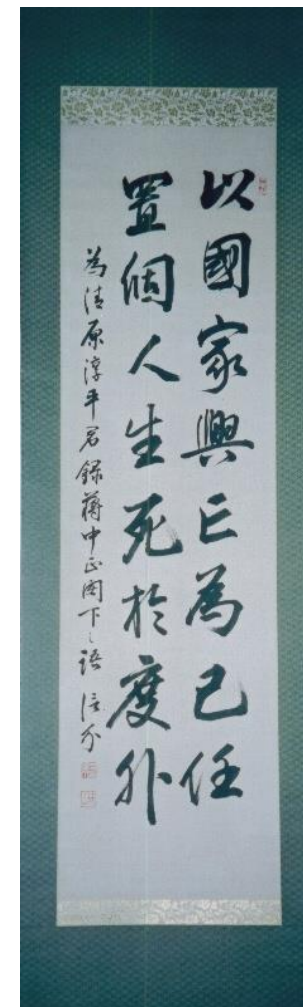 以國家興亡為已任
置個人生死於度外
為清原淳平君録蔣中正閣下之語 信介